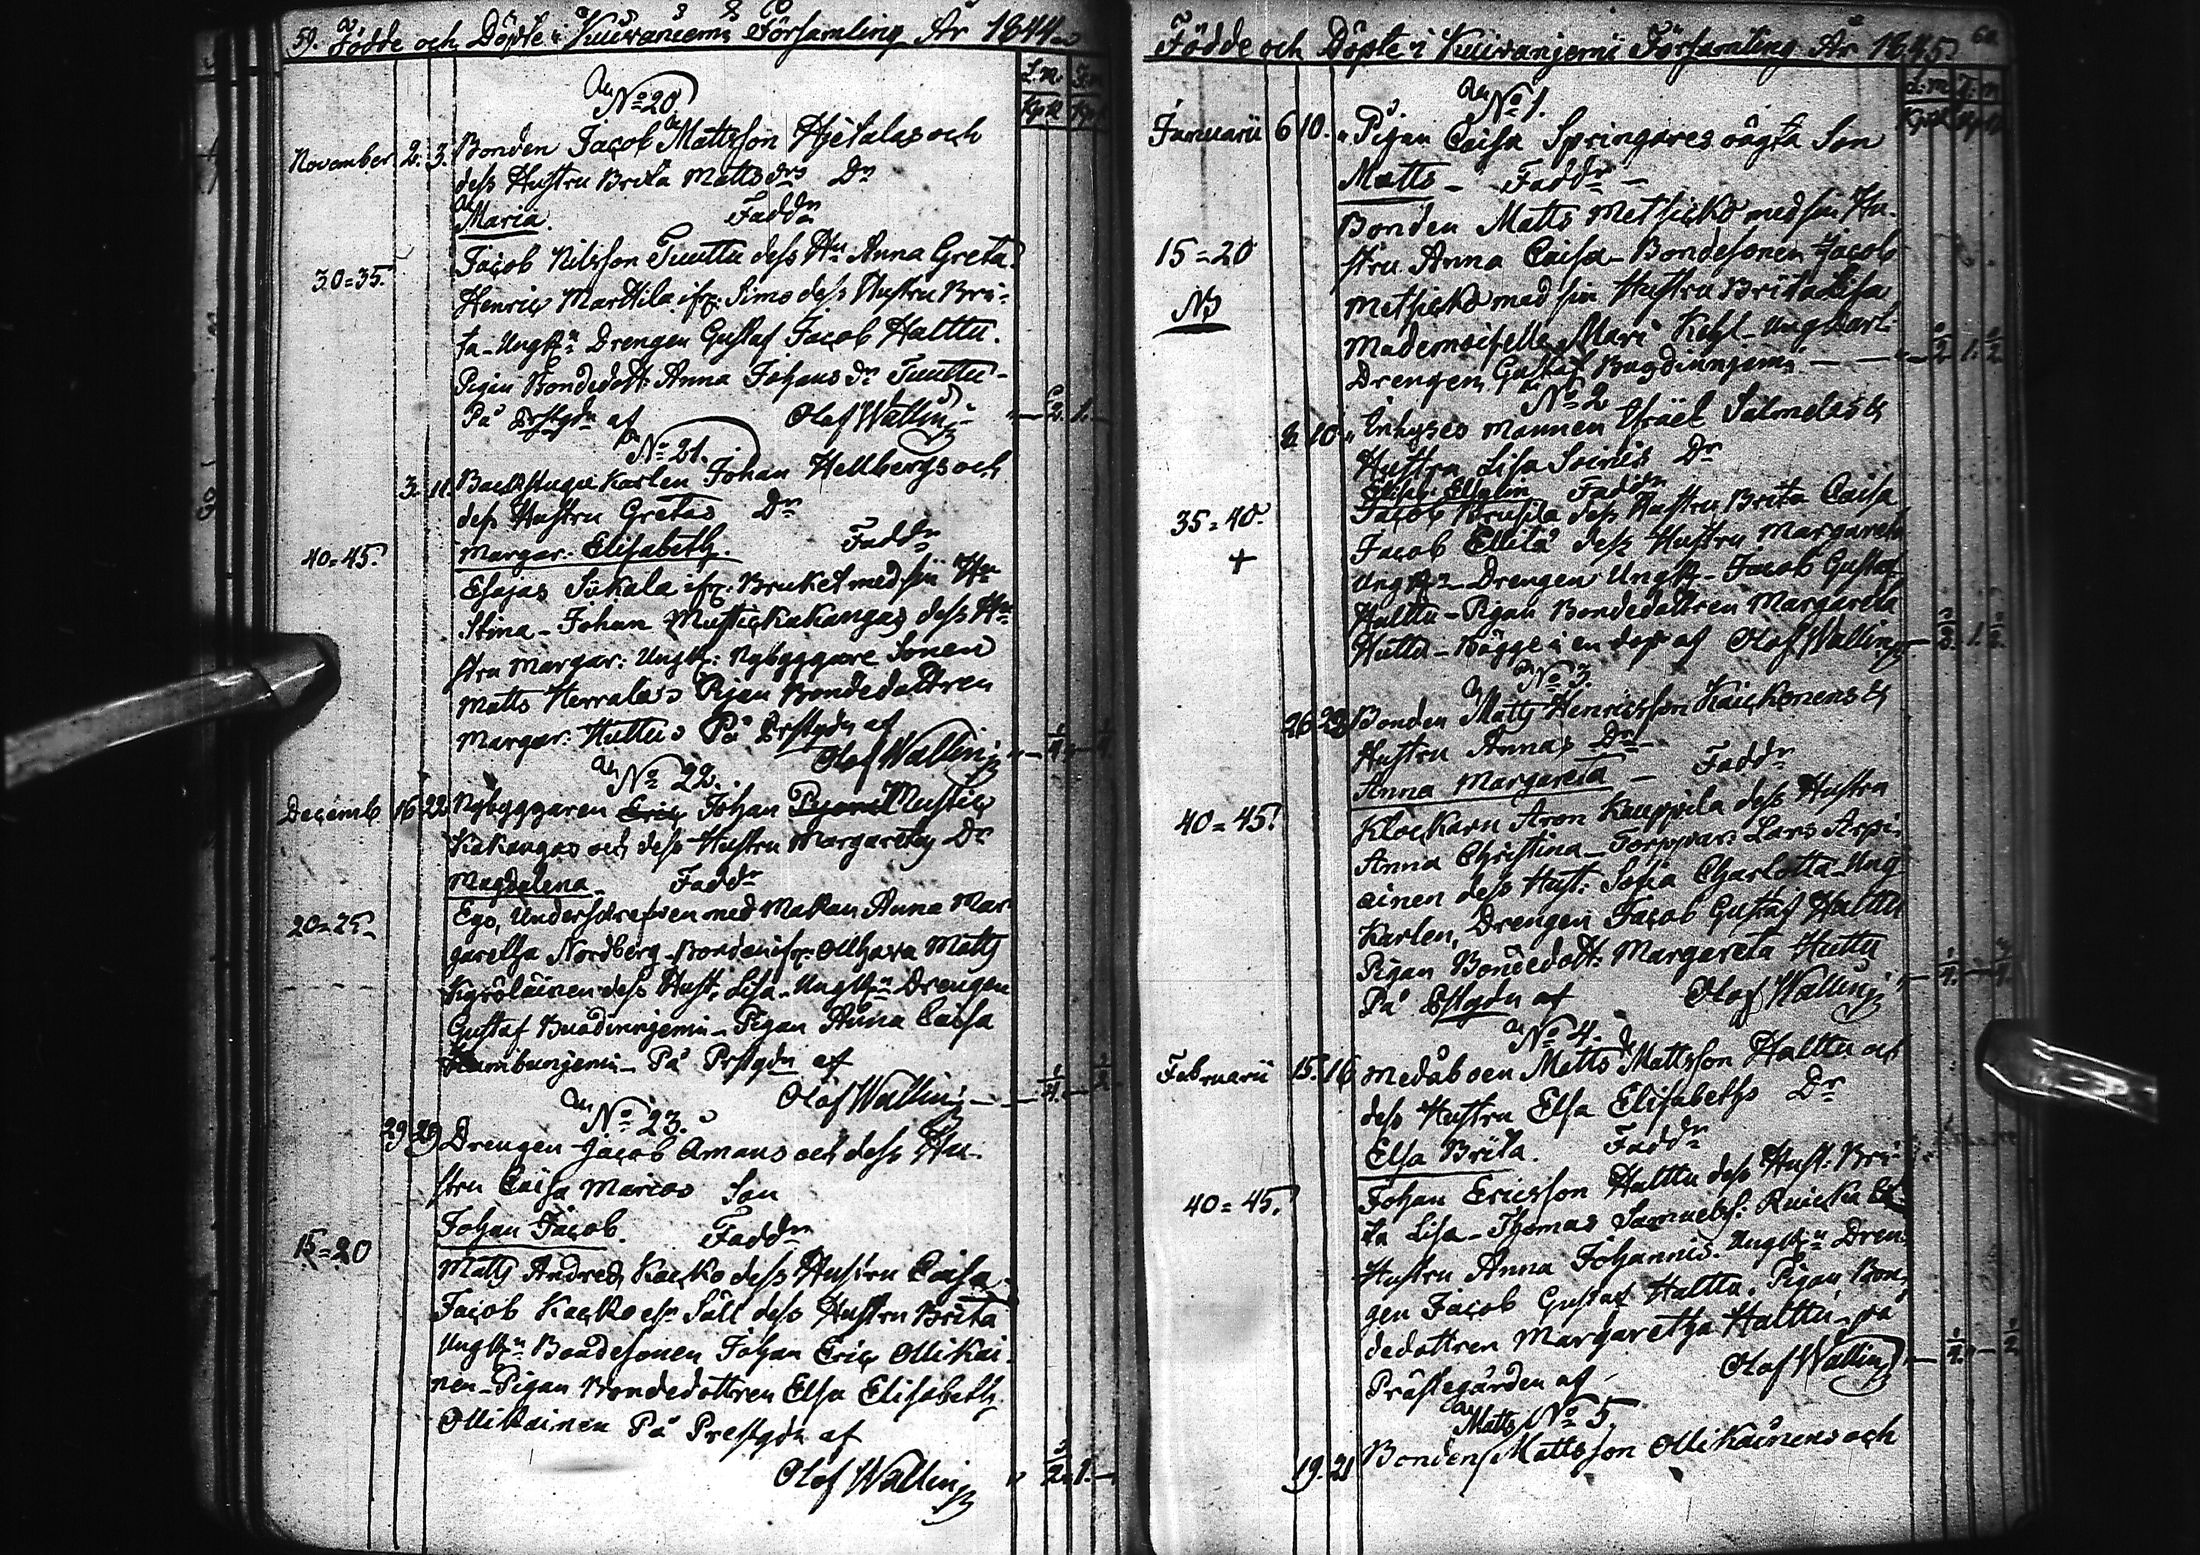 59. Födde och Döpte i Kuivaniemi Församling År 1844.
No 20.
November 2. 3. Bonden Jacob Mattsson Hjetalas och
dess Hustru Brita Mattsdrs Dr
Maria. Faddr
Jacob Nilsson Tuuttu dess Hu Anna Greta
30=35.
Henric Marttila ifr. Simo dess Hustru Bri-
ta - Ungk:n Drengen Gustaf Jacob Halttu.
Pigan Bondedott: Anna Johans dr Tuuttu -
På Prstgdn af Olof Wallin
No 21.
3. 11. Johan Hellbergs och
dess Hustru Gretas Dr
Margar. Elisabeth. Faddr
40=45.
Esajas Sükala ifr. Bruket med sin Hu
Stina - Johan Mustickakangas dess Hu-
stru Margar: Ungk: Nybyggare Sonen
Matts Herralas Pigan Bondedottren
Margar. Huttus På Prstgdn af
Olof Wallin
No 22.
Decemb 16 22. Nybyggaren Eric Johan Mustic
Kakangas och dess Hustru Margareths Dr
Magdalena. Faddr
Ego, Underskrefwen med Makan Anna Mar-
20=25
garetha Nordberg - Bonden ifr. Olhava Matts
Kyröläinen dess Hust. Lisa - Ungk:n Drengen
Gustaf Buddinnjemi - Pigan Anna Caisa
På Prstgdn af
Olof Wallin
No 23.
29 29 Drengen Jacob Amans och dess Hu-
stru Caisa Marias Son
Johan Jacob. Faddr
15=20
Matts Andreas Kacko dess Hustru Caisa
Jacob Kacko dess Hustru Brita
Ungk:n Bondesonen Johan Eric Ollikai-
nen - Pigan Bondedottren Elsa Elisabeth
Ollikainen På Prestgdn af
Olof Wallin
Födde och Döpte i Kuivanjemi Församling År 1845. 60
No 1.
Januarii 6 10. Pigan Caisa Springares oägta Son
Matts - Faddr -
Bonden Matts Metsicko med sin Hu-
15=20
stru Anna Caisa - Bondesonen Jacob
NB
Metsicko med sin Hustru Brita Lisa
Mademoiselle Mari - Ungkarl.
Drengen Gustaf Bugdinnjemi
No 2
8. 10. Inhyses Mannen Israel Salmelas &
Hustru Lisa Soinis Dr
Faddr
Jacob dess Hustru Brita Caisa
35=40.
Jacob Ellitä dess Hustru Margareta
+
Ungk:n Drengen Ungk - Jacob Gustaf
Halttu - Pigan Bondedottren Margareta
Huttu - Bägge i en dop af Olof Wallin
No 3.
26 28 Bonden Matts Henricsson Kaickonens &
Hustru Annas Dr -
Anna Margareta - Faddr
40=45.
Klockarn Aron Kauppila dess Hustru
Anna Christina - Torppar: Lars Arpi-
ainen dess Hust: Sofia Charlotta - Ung
Karlen, Drengen Jacob Gustaf Halttu
Pigan Bondedott: Margareta Huttu
På Pstgdn af Olof Wallin
No 4.
Februarii 15. 16 Medåboen Matts Mattsson Halttu och
dess Hustru Elsa Elisabeths Dr
Elsa Brita. Faddr
40=45.
Johan Ericsson Halttu dess Hust: Bri-
ta Lisa - Thomas Samuelss: Ruicka &
Hustru Anna Johannis. Ungk:n Dren-
gen Jacob Gustaf Halttu. Pigan, Bon-
dedottren Margaretha Halttu - på
Prästegården af Olof Wallin
No 5.
Matts
19. 21 Bonden Mattsson Ollikainens och